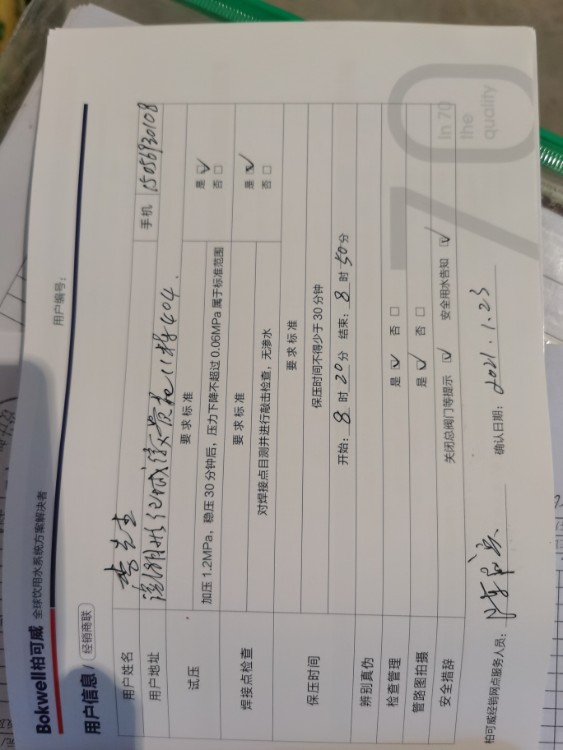 Bokwell柏可威 全球饮用水系统方案解决者
用户信息/ 经销商联 用户编号：
用户姓名 李先生
用户地址 11栋404. 手机 15056930108
试压 要求标准
加压1.2MPa，稳压30分钟后，压力下降不超过0.06MPa属于标准范围 是☑ 否□
焊接点检查 要求标准
对焊接点目测并进行敲击检查，无渗水 是☑ 否□
保压时间 要求标准
保压时间不得少于30分钟
开始：8时20分 结束：8时50分
辨别真伪
检查管理 是☑ 否□
管路图拍摄 是☑ 否□
安全措辞 关闭总阀门等提示☑ 安全用水告知☑
柏可威经销网点服务人员： 确认日期：2021.1.23
70
In 70
the
quality